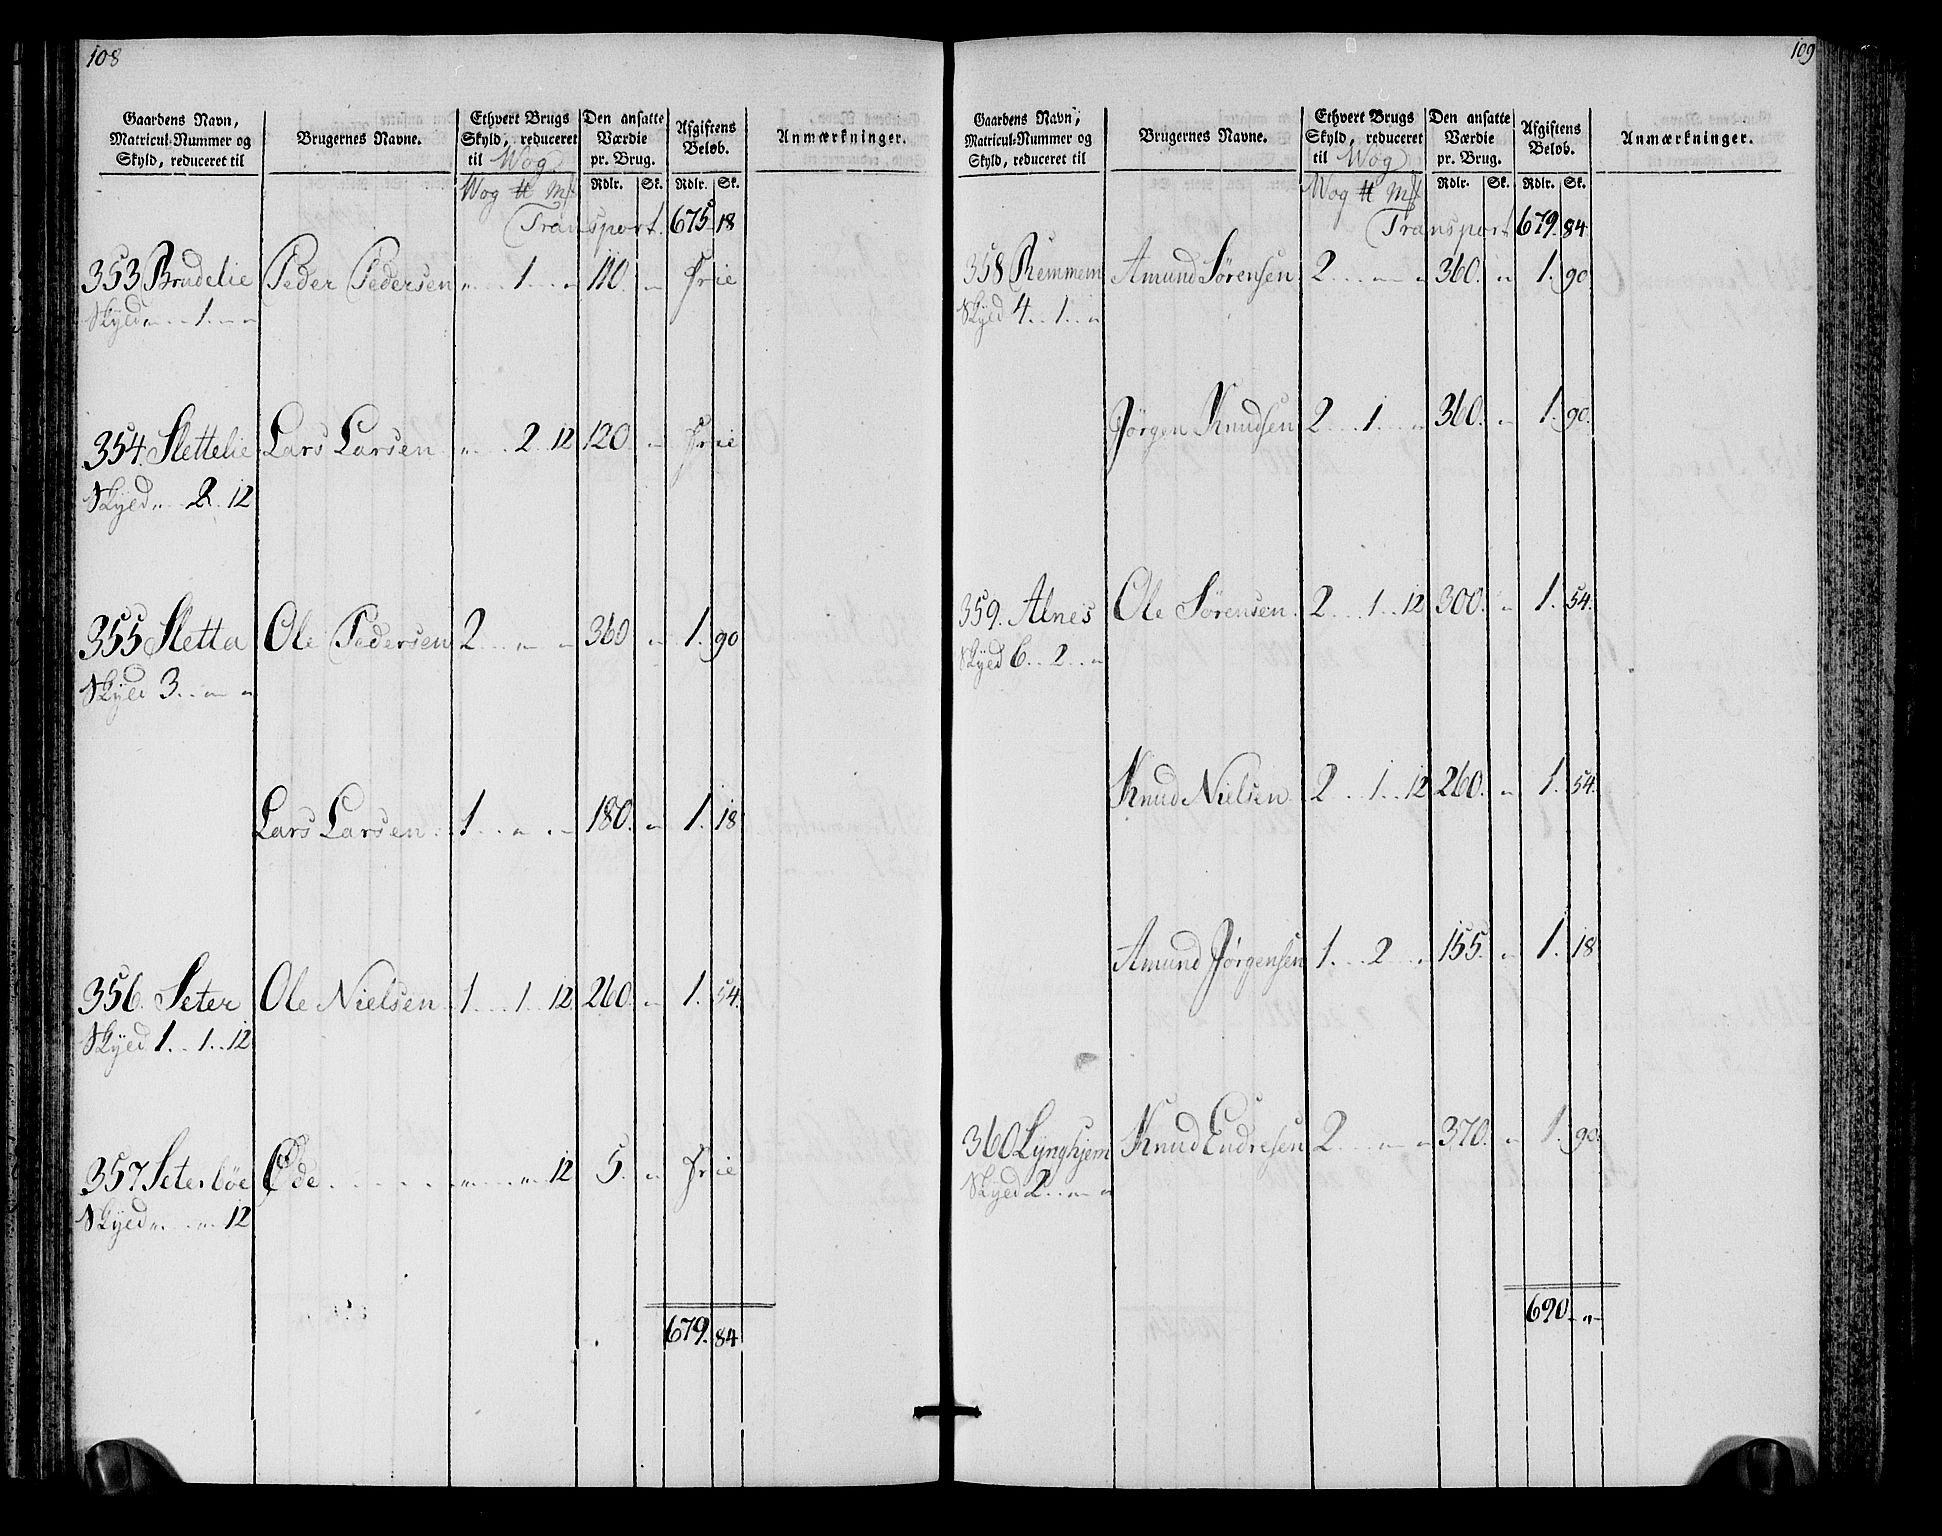 108
Gaardens Navn, Matricul-Nummer og Skyld, reduceret til | Brugernes Navne. | Ethvert Brugs Skyld, reduceret til Wog | Den ansatte Værdie pr. Brug. | Afgiftens Beløb. | Anmærkninger.
Wog ## Mk | Rdlr. | Sk. | Rdlr. | Sk.
Transport. 675 18
353 Brudelie Peder Pedersen „ . . 1 . . „ 110. „ Frie
Skyld „ . . 1 . „
354. Slettelie Lars Larsen „ . . 2 . 12 120 „ Frie
Skyld „ . . 2 . 12
355 Sletta Ole Pedersen 2 . . „ „ 360 „ 1. 90
Skyld 3 . . „ „
Lars Larsen. 1 . . „ . „ 180. „ 1. 18.
356. Seter Ole Nielsen 1 . . 1 . 12 260. „ 1. 54.
Skyld 1 . . 1 . . 12
357 Seterløe Øde . . . . . „ . . „ 12 5. „ Frie
Skyld „ . . „ 12
679. 84
109
Gaardens Navn, Matricul-Nummer og Skyld, reduceret til | Brugernes Navne. | Ethvert Brugs Skyld, reduceret til Wog | Den ansatte Værdie pr. Brug. | Afgiftens Beløb. | Anmærkninger.
Wog ## Mk | Rdlr. | Sk. | Rdlr. | Sk.
Transport 679. 84.
358 Remmem Amund Sørensen 2 . . „ „ 360. „ 1. 90
Skyld 4 . . 1 . . „
Jørgen Knudsen 2 . . 1 . . „ 360. „ 1. 90.
359. Alnes Ole Sørensen. 2 . . 1 . . 12 300. „ 1. 54.
Skyld 6 . . 2 . . „
Knud Nielsen. 2 . . 1 . . 12 260. „ 1. 54.
Amund Jørgensen 1 . . 2 . . „ 155. „ 1. 18
360 Lynghjem Knud Endresen 2 . . „ „ 370. „ 1. 90.
Skyld 2 . . „ „
690. „